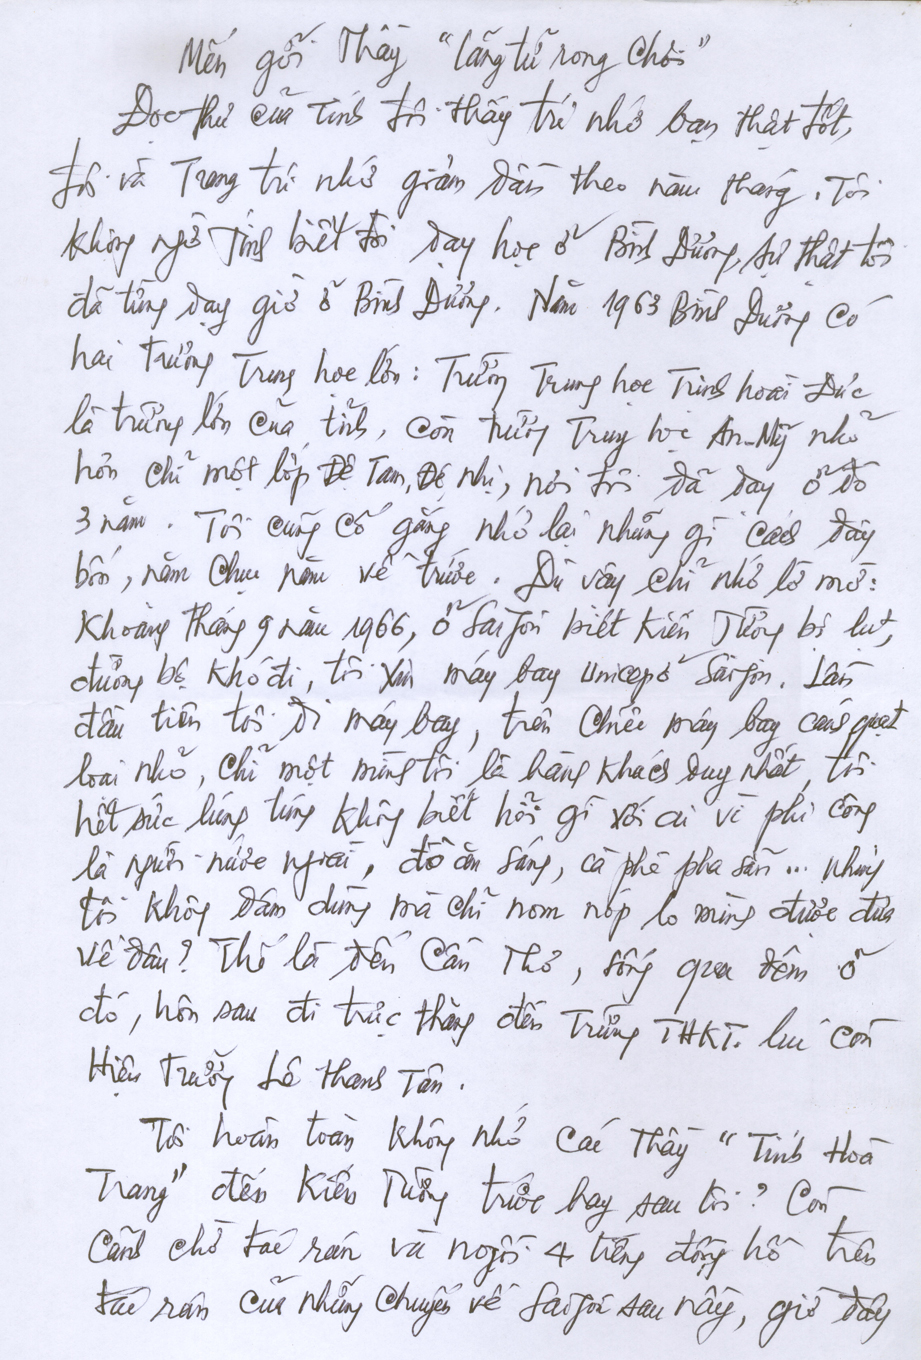 Mến gởi Thầy "lãng tử rong chơi"
Đọc thư của Tính tôi thấy trí nhớ bạn thật tốt,
tôi và Trang trí nhớ giảm dần theo năm tháng. Tôi
không ngờ Tính biết tôi dạy học ở Bình Dương, sự thật tôi
đã từng dạy giờ ở Bình Dương. Năm 1963 Bình Dương có
hai trường Trung học lớn: Trường Trung học Trịnh hoài Đức
là trường lớn của tỉnh, còn trường Trung học An-Mỹ nhỏ
hơn chỉ một lớp Đệ Tam, Đệ nhị, nơi tôi đã dạy ở đó
3 năm. Tôi cũng cố gắng nhớ lại những gì cách đây
bốn, năm chục năm về trước. Dù vậy chỉ nhớ lờ mờ:
Khoảng tháng 9 năm 1966, ở Sài Gòn biết Kiến Tường bị lụt,
đường bộ khó đi, tôi xin máy bay Unicep ở Sài Gòn. Lần
đầu tiên tôi đi máy bay, trên chiếc máy bay cánh quạt
loại nhỏ, chỉ một mình tôi là hành khách duy nhất, tôi
hết sức lúng túng không biết hỏi gì với ai vì phi công
là người nước ngoài, đồ ăn sáng, cà phê pha sẵn... nhưng
tôi không dám dùng mà chỉ nơm nớp lo mình được đưa
về đâu? Thế là đến Cần Thơ, sống qua đêm ở
đó, hôm sau đi trực thăng đến Trường THKT. lúc còn
Hiệu Trưởng Lê Thanh Tân.
Tôi hoàn toàn không nhớ các Thầy "Tính Hoà
Trang" đến Kiến Tường trước hay sau tôi? Còn
cảnh chờ tắc rán và ngồi 4 tiếng đồng hồ trên
tắc rán của những chuyến về Sài Gòn sau này, giờ đây